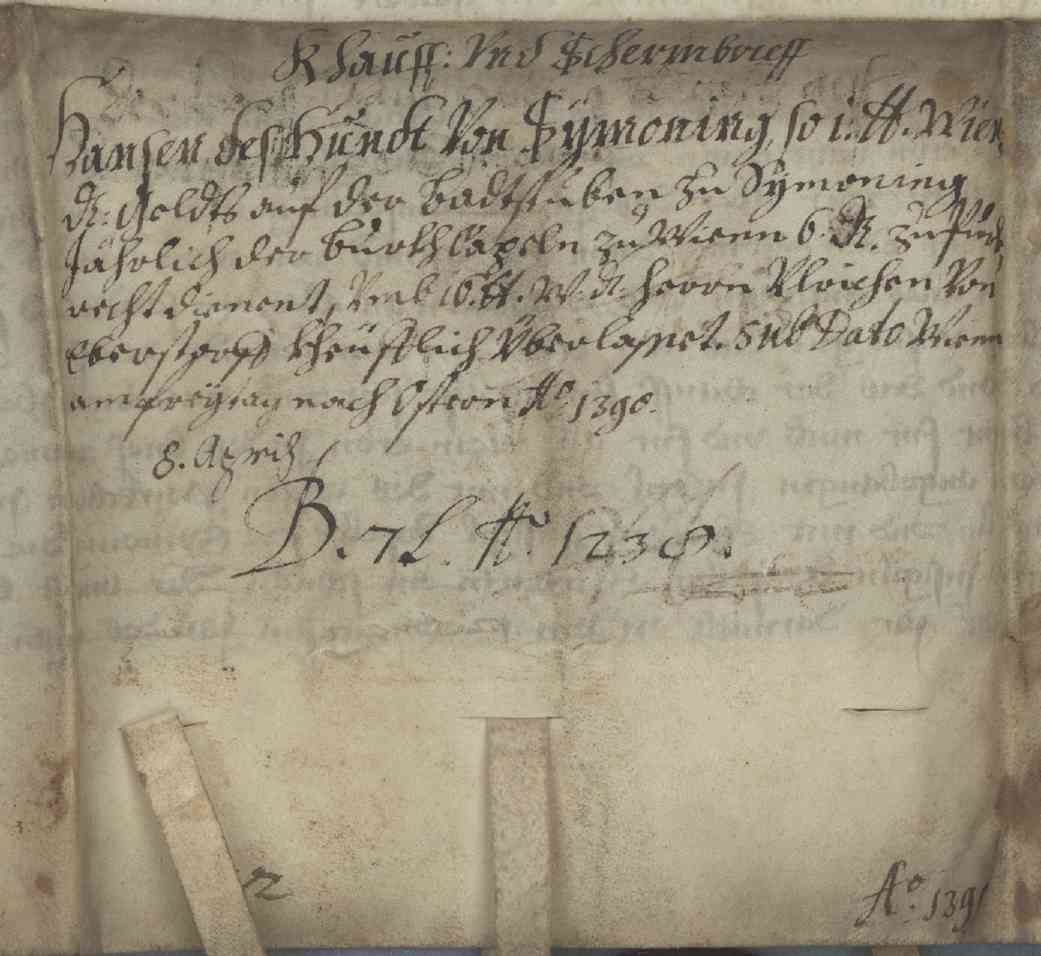 Khauff: Vnd Schermbrieff
Hansen des Hundt Von Symoning, so 1. tt. Wien.
d: Geldts auf der Badtstuben zu Symoning
Jährlich der Burkh Capeln zu Wienn 6. d. zu
recht dienent, Vmb 16. tt. W. d. herrn Vlrichen Von
Eberstorff kheüfflich Vberlasset. sub Dato Wienn
am freÿtag nach Ostern Aº. 1390.
8. April
B. 72. Aº. 1238.
2
Aº. 1391